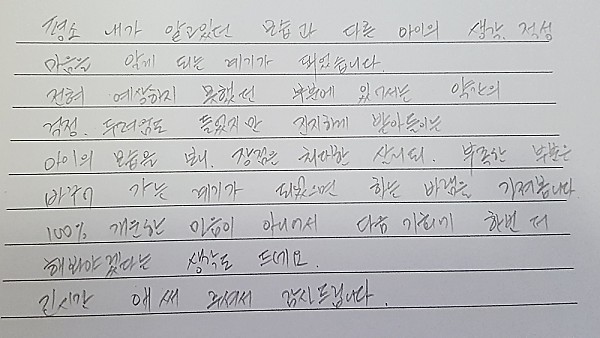 평소 내가 알고있던 모습과 다른 아이의 생각, 적성
마음을 알게 되는 계기가 되었습니다.
전혀 예상하지 못했던 부분에 있어서는 약간의
걱정, 두려움도 들었지만 진지하게 받아들이는
아이의 모습을 보니, 장점을 최대한 살리되, 부족한 부분은
바꾸어 가는 계기가 되었으면 하는 바램을 가져봅니다
100% 개운한 마음이 아니어서 다음 기회에 한번 더
해봐야겠다는 생각도 드네요.
긴시간 애써 주셔서 감사드립니다.